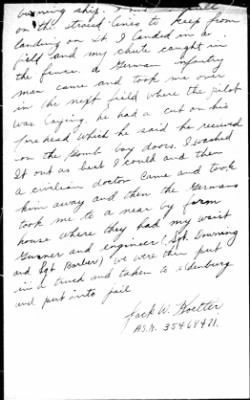 burning ship.
on the shroud lines to keep from
landing on it I landed in a
field and my chute caught in
the fence. a German infantry
man came and took me over
in the next field where the pilot
was laying, he had a cut on his
forehead which he said he received
on the Bomb bay doors. I washed
It out as best I could and then
a civilian doctor came and took
him away and then the Germans
took me to a near by farm
house where they had my waist
Gunner and engineer (Sgt. Downing
and Sgt Barber) we were then put
in a truck and taken to oldenburg
and put into jail
Jack W.
ASN. 35468471.